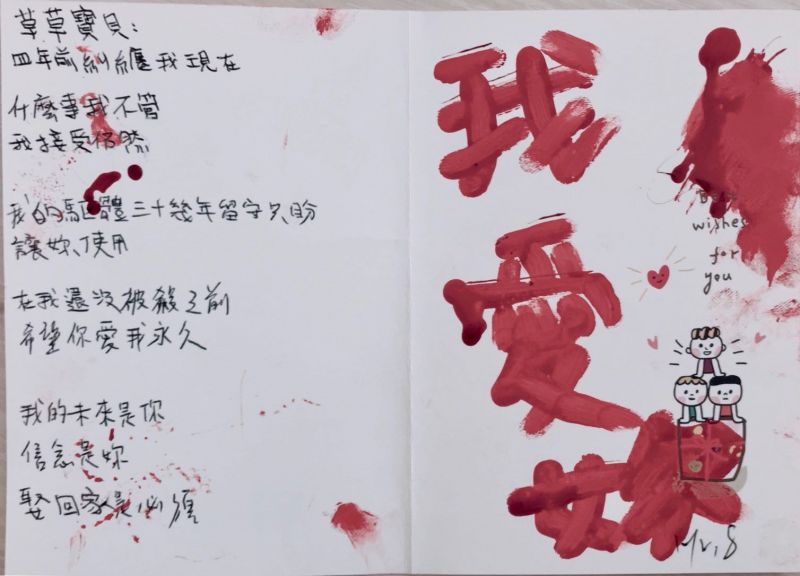 草草寶貝:
四年前糾纏我現在
什麼事我不管
我接受你
我的軀體三十幾年留守只盼
讓妳使用
在我還沒被殺之前
希望你愛我永久
我的未來是你
信念是妳
娶回家是必須
我
愛
妳
Best
wishes
for
you
Mr.S